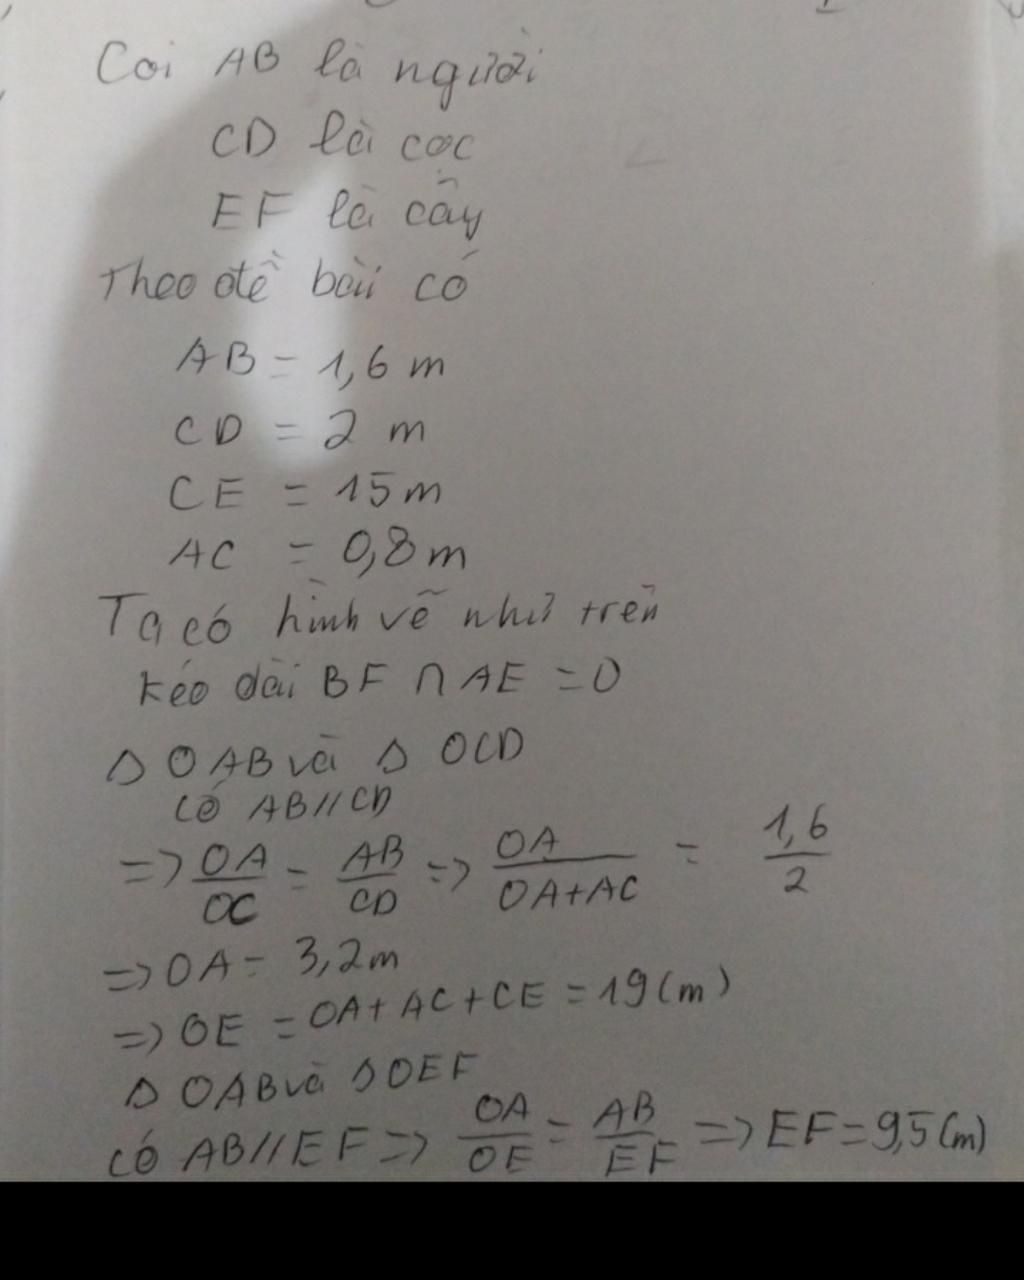 Coi AB là người
CD là cọc
EF là cây
Theo đề bài có
AB = 1,6 m
CD = 2 m
CE = 15 m
AC = 0,8 m
Ta có hình vẽ như trên
kéo dài BF ∩ AE = O
Δ OAB và Δ OCD
có AB // CD
=> OA/OC = AB/CD => OA/(OA+AC) = 1,6/2
=> OA = 3,2m
=> OE = OA + AC + CE = 19 (m)
Δ OAB và Δ OEF
có AB // EF => OA/OE = AB/EF => EF = 9,5 (m)